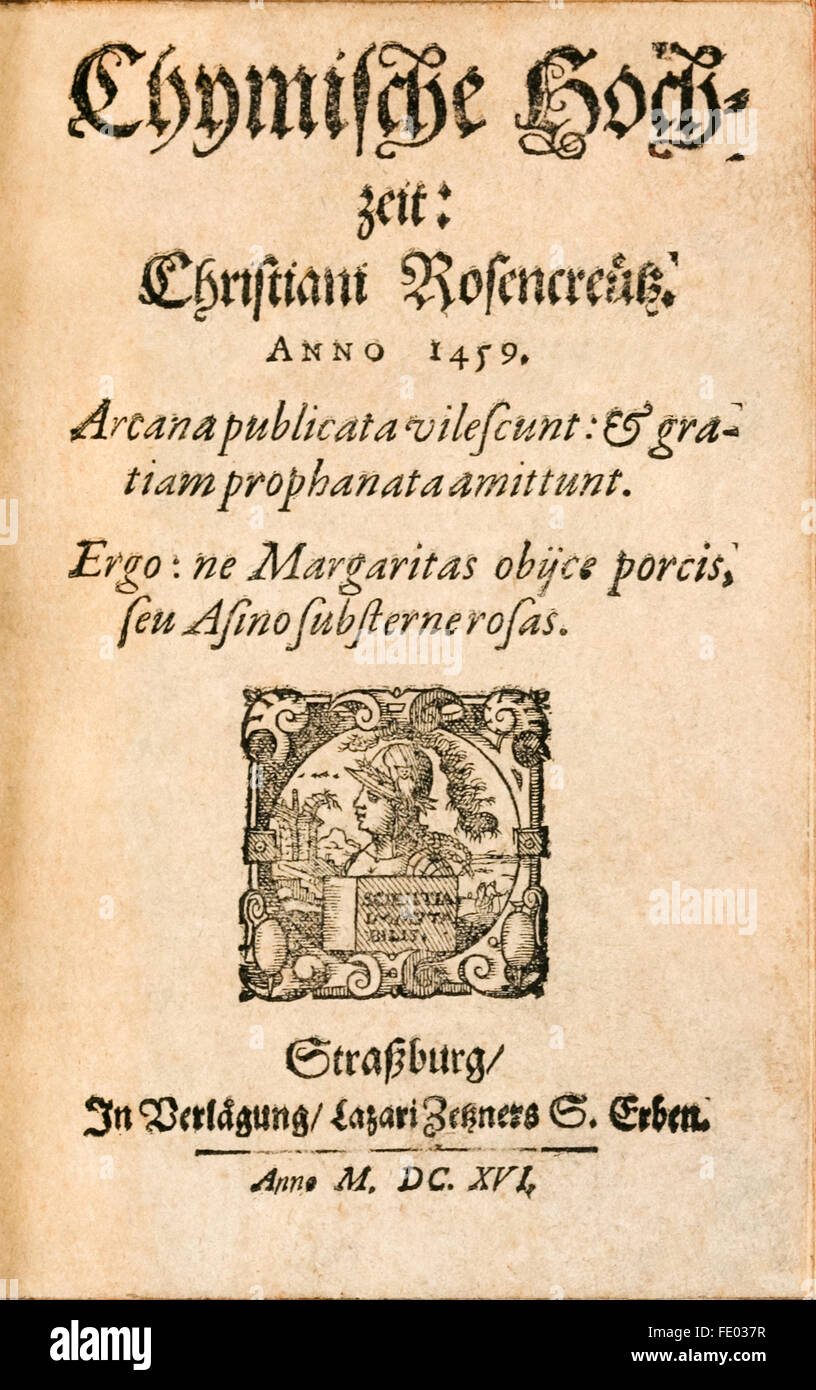 Chymische Hoch-
zeit:
Christiani Rosencreütz.
ANNO 1459.
Arcana publicata vilescunt: & gra-
tiam prophanata amittunt.
Ergo: ne Margaritas obijce porcis,
seu Asino substerne rosas.
SCIENTIA
IMMUTA
BILIS.
Straßburg/
In Verlägung/ Lazari Zetzners S. Erben.
Anno M. DC. XVI.
alamy
a
a
a
alamy stock photo
FE037R
www.alamy.com